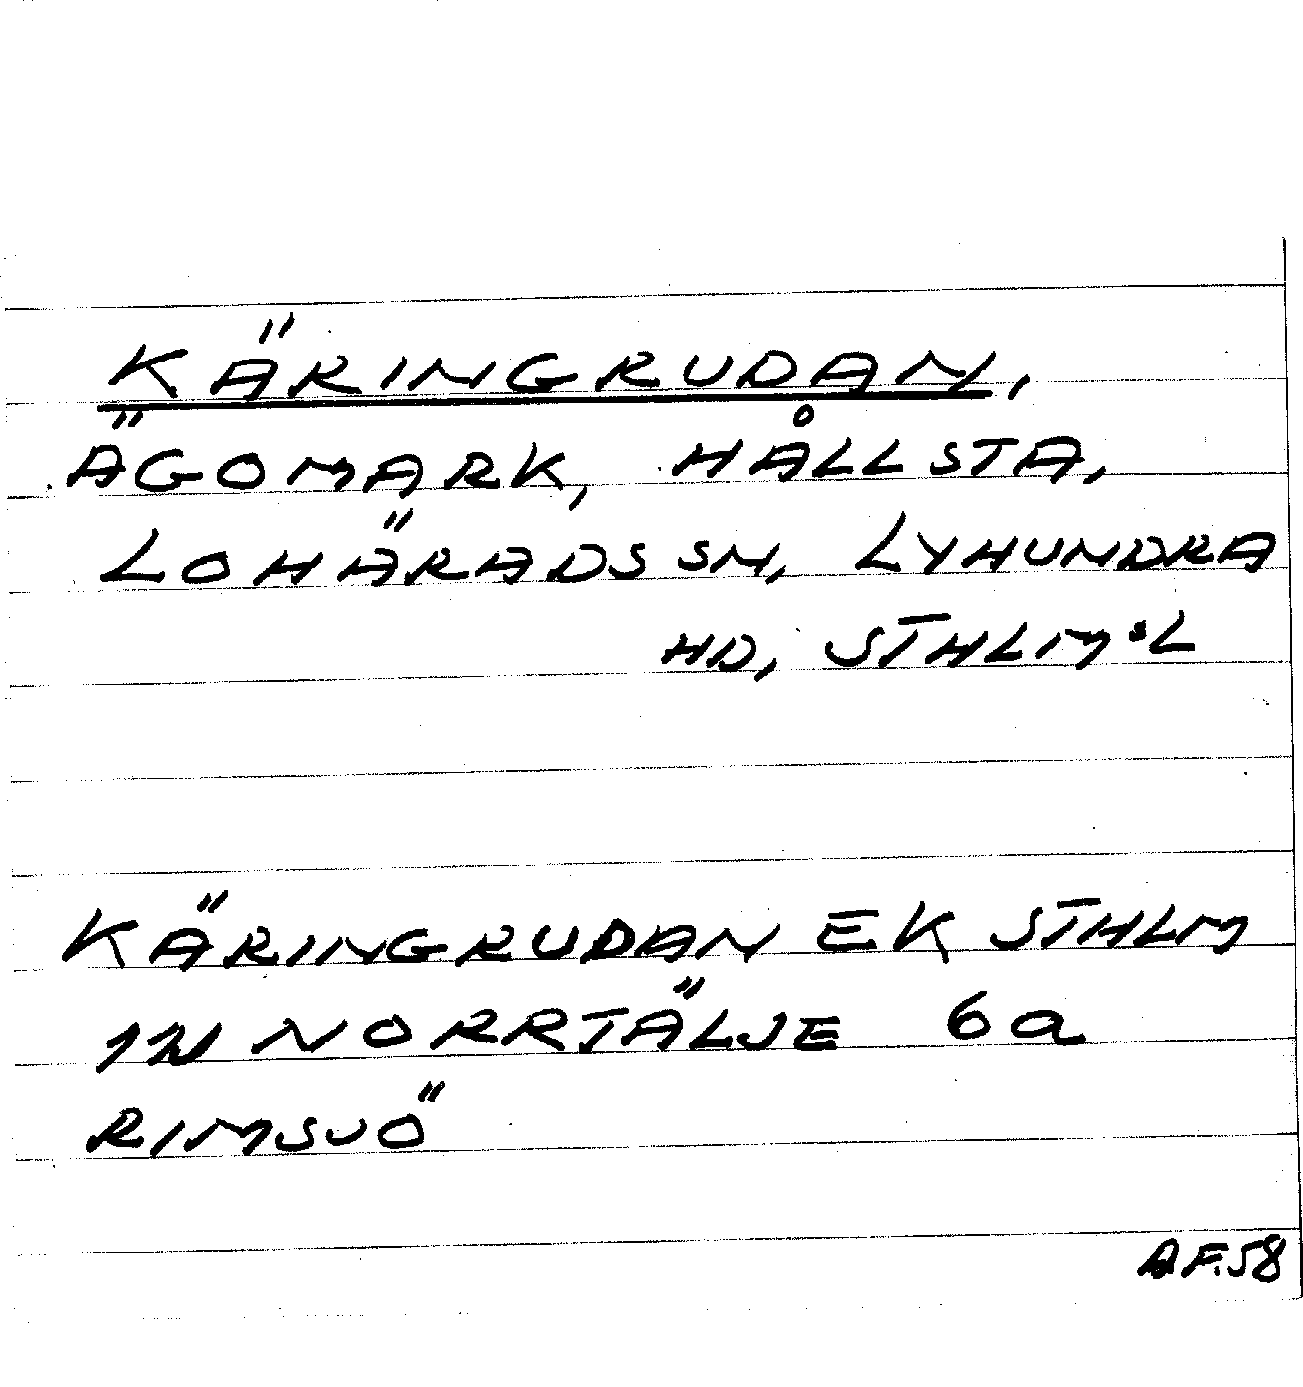 KÄRINGRUDAN,
ÄGOMARK, HÅLLSTA,
LOHÄRADS SN, LYHUNDRA
HD, STHLM:S L
KÄRINGRUDAN EK STHLM
11V NORRTÄLJE 6a
RIMSJÖ
A.F.58